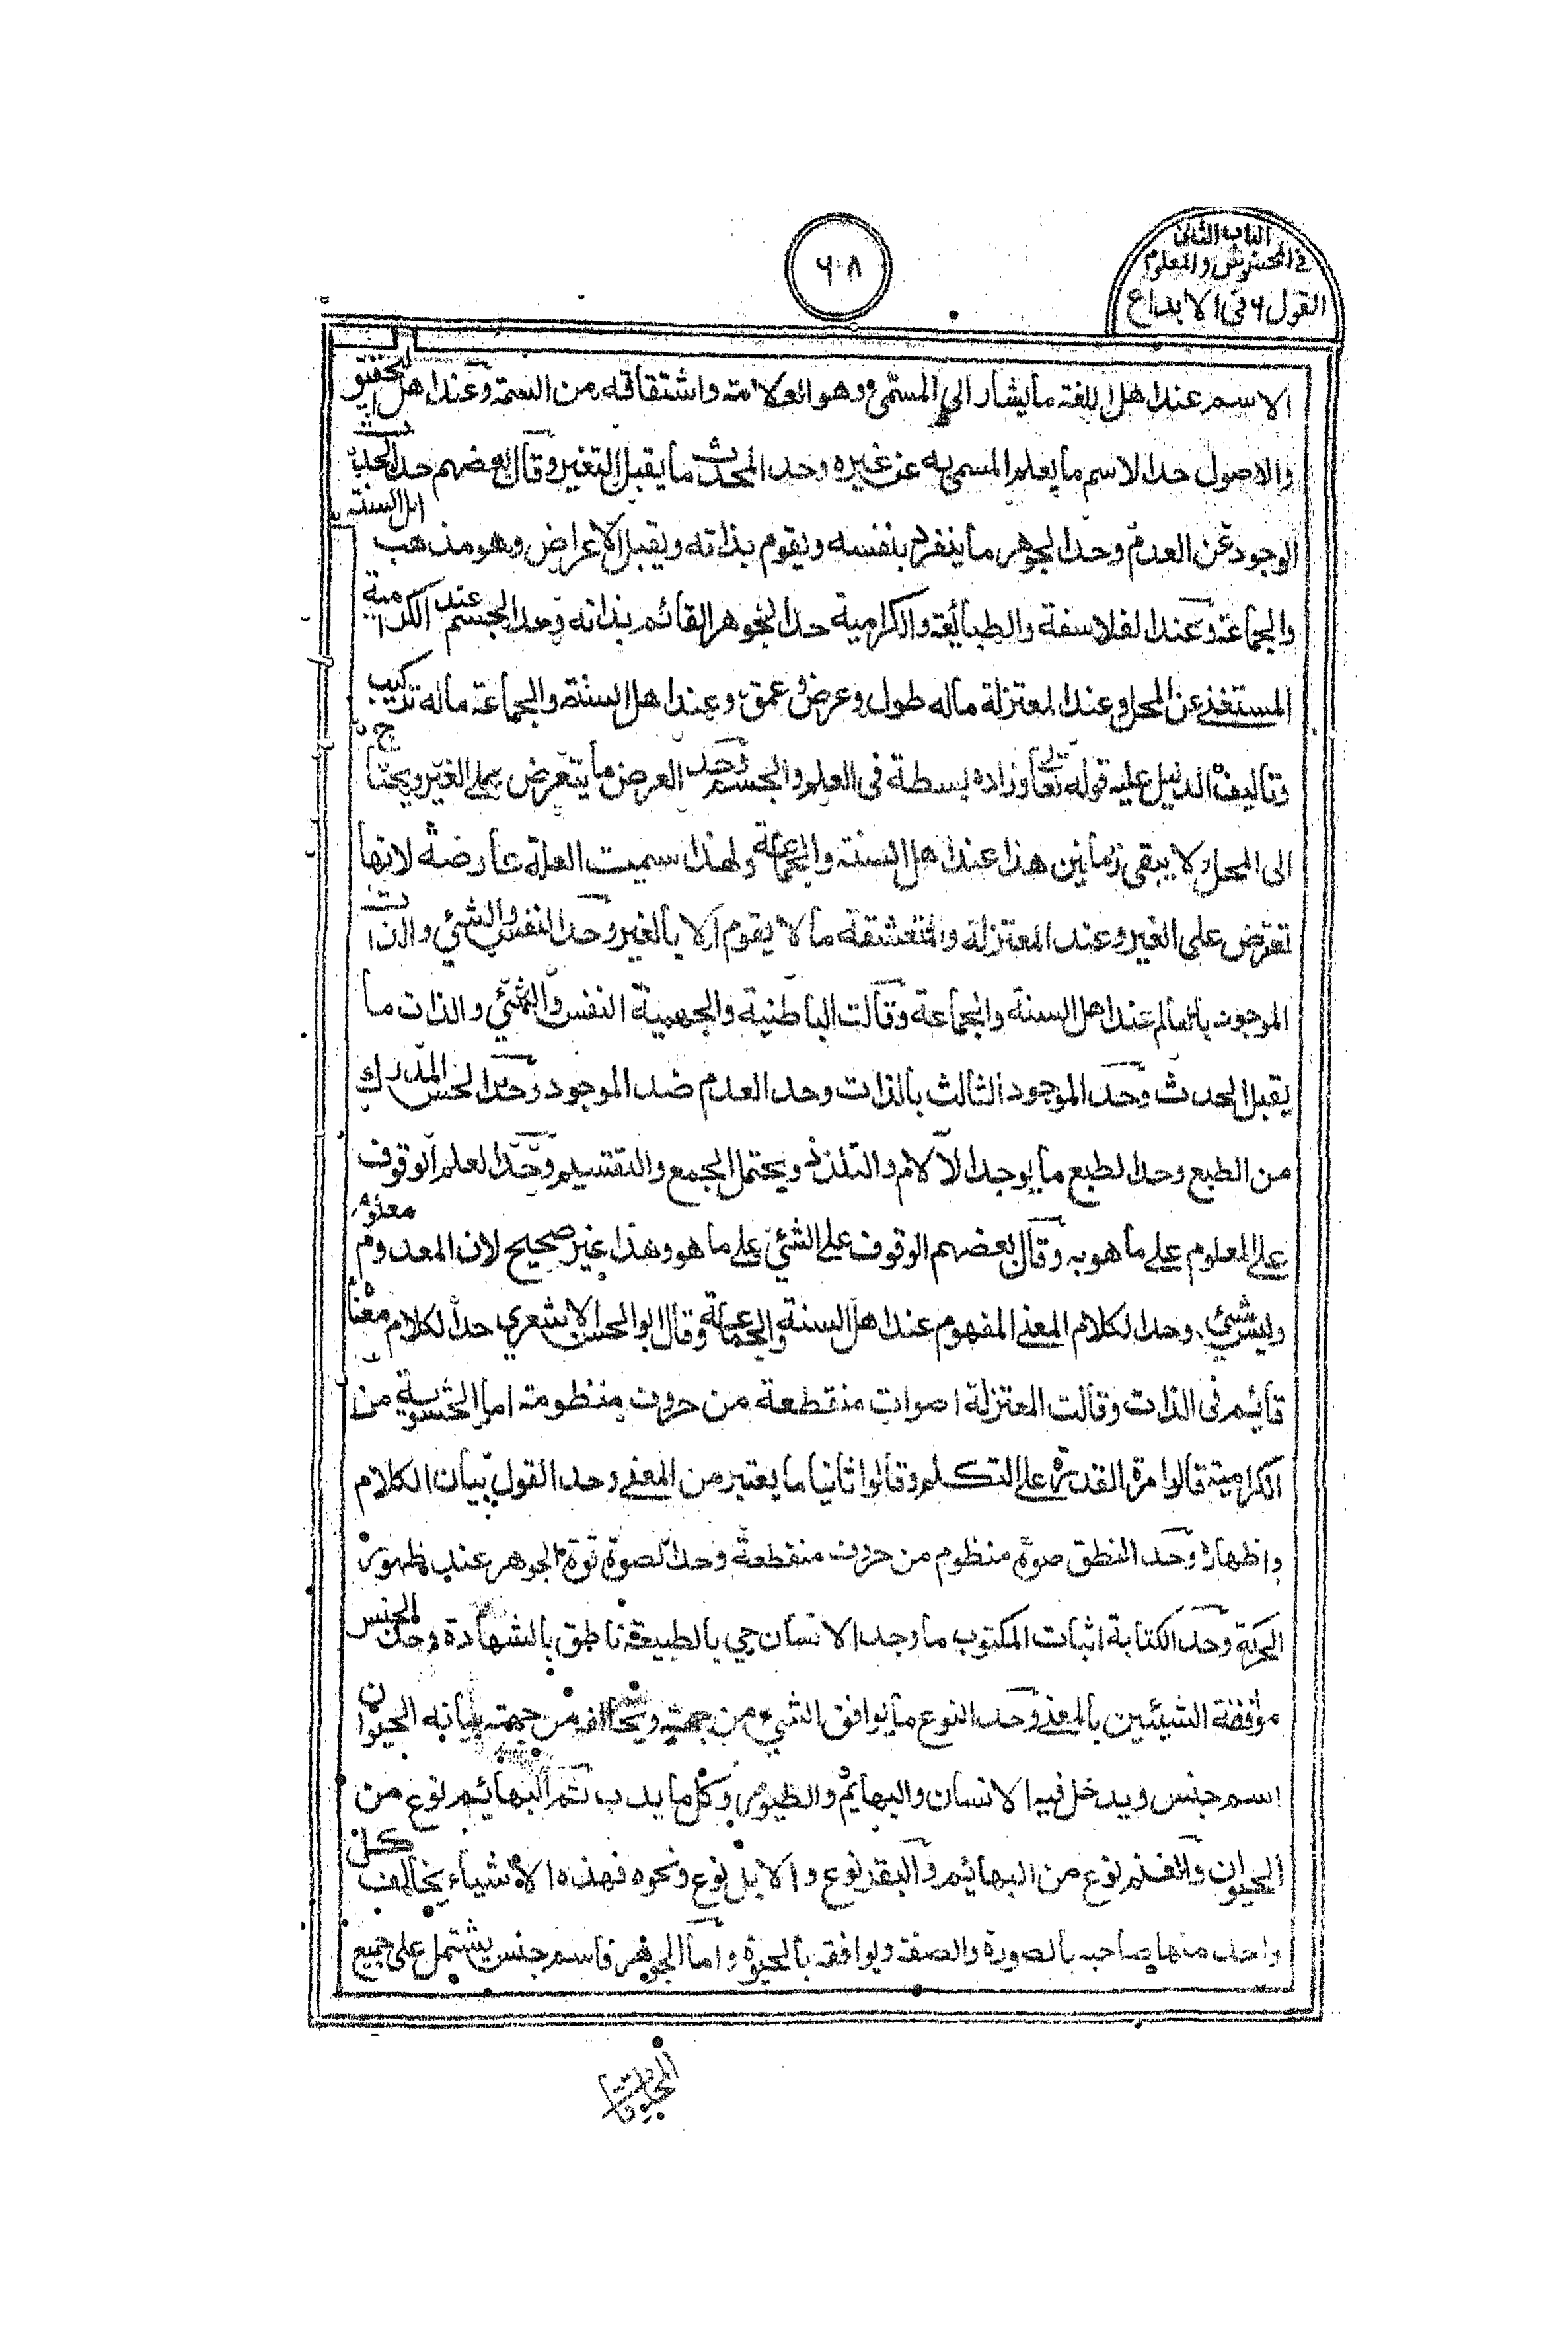 الباب الثاني
في العرش والمعلوم
القول ٦ في الابداع
٦٠٨
الاسم عند اهل اللغة ما يشار الي المسمى وهو العلامة واشتقاقه من السمة وعند اهل التحقيق
والاصول حد الاسم ما يعلم المسمى به عن غيره وحد المحدث ما يقبل التغير وقال بعضهم حد الحدث
الوجود عن العدم وحد الجوهر ما ينفرد بنفسه ويقوم بذاته ويقبل الاعراض وهو مذهب اهل السنة
والجماعة وعند الفلاسفة والطبائعة والكرامية حد الجوهر القائم بذاته وحد الجسم عند الكرامية
المستغنے عن المحل وعند المعتزلة ماله طول وعرض وعمق وعند اهل السنة والجماعة ماله تركيب
وتاليف الدليل عليه قوله تعالى وزاده بسطة في العلم والجسم وحد العرض ما يتعرض علے الغير ويحتاج
الى المحل ولا يبقى زمانين هذا عند اهل السنة والجماعة ولهذا سميت العلة عارضة لانها
تعرض على الغير وعند المعتزلة والمتعشقة ما لا يقوم الا بالغير وحد النفس والشئي والذات
الموجود بالعالم عند اهل السنة والجماعة وقالت الباطنية والجهمية النفس والشئي والذات ما
يقبل الحدث وحد الموجود الثالث بالذات وحد العدم ضد الموجود وحد الحس المدرك
من الطبع وحد الطبع ما يوجد الالام والتلذذ ويحتمل الجمع والتقسيم وحد العلم الوقوف
علے المعلوم علے ما هو به وقال بعضهم الوقوف علے الشئي علے ما هو وهذا غير صحيح لان المعدوم معلوم
وليس شئي وحد الكلام المعنے المفهوم عند اهل السنة والجماعة وقال ابو الحسن الاشعري حد الكلام معناه
قائيم في الذات وقالت المعتزلة اصوات منقطعة من حروف منظومة اما الحشوية من
الكرامية قالوا مرة القدرة علے التكلم وقالوا ثانيا ما يعتبر من المعنے وحد القول بيان الكلام
واظهاره وحد النطق صوة منظوم من حروف منقطعة وحد الصوة قوة الجوهر عند ظهور
الحركة وحد الكتابة اثبات المكتوب ما وجد الانسان حي بالطبيعة ناطق بالشهادة وحد الجنس
موافقة الشيئين بالمعنے وحد النوع ما يوافق الشيء من جهة ويخالفه من جهة بيانه الحيوان
اسم جنس ويدخل فيه الانسان والبهايم والطيور وكل ما يدب ثم البهائيم نوع من
الحيوان والغنم نوع من البهائيم والبقر نوع والابل نوع ونحوه فهذه الاشياء يخالف كل
واحد منها صاحبه بالصورة والصفة ويوافقه بالحيوة واما الجوهر فاسم جنس يشتمل على جميع